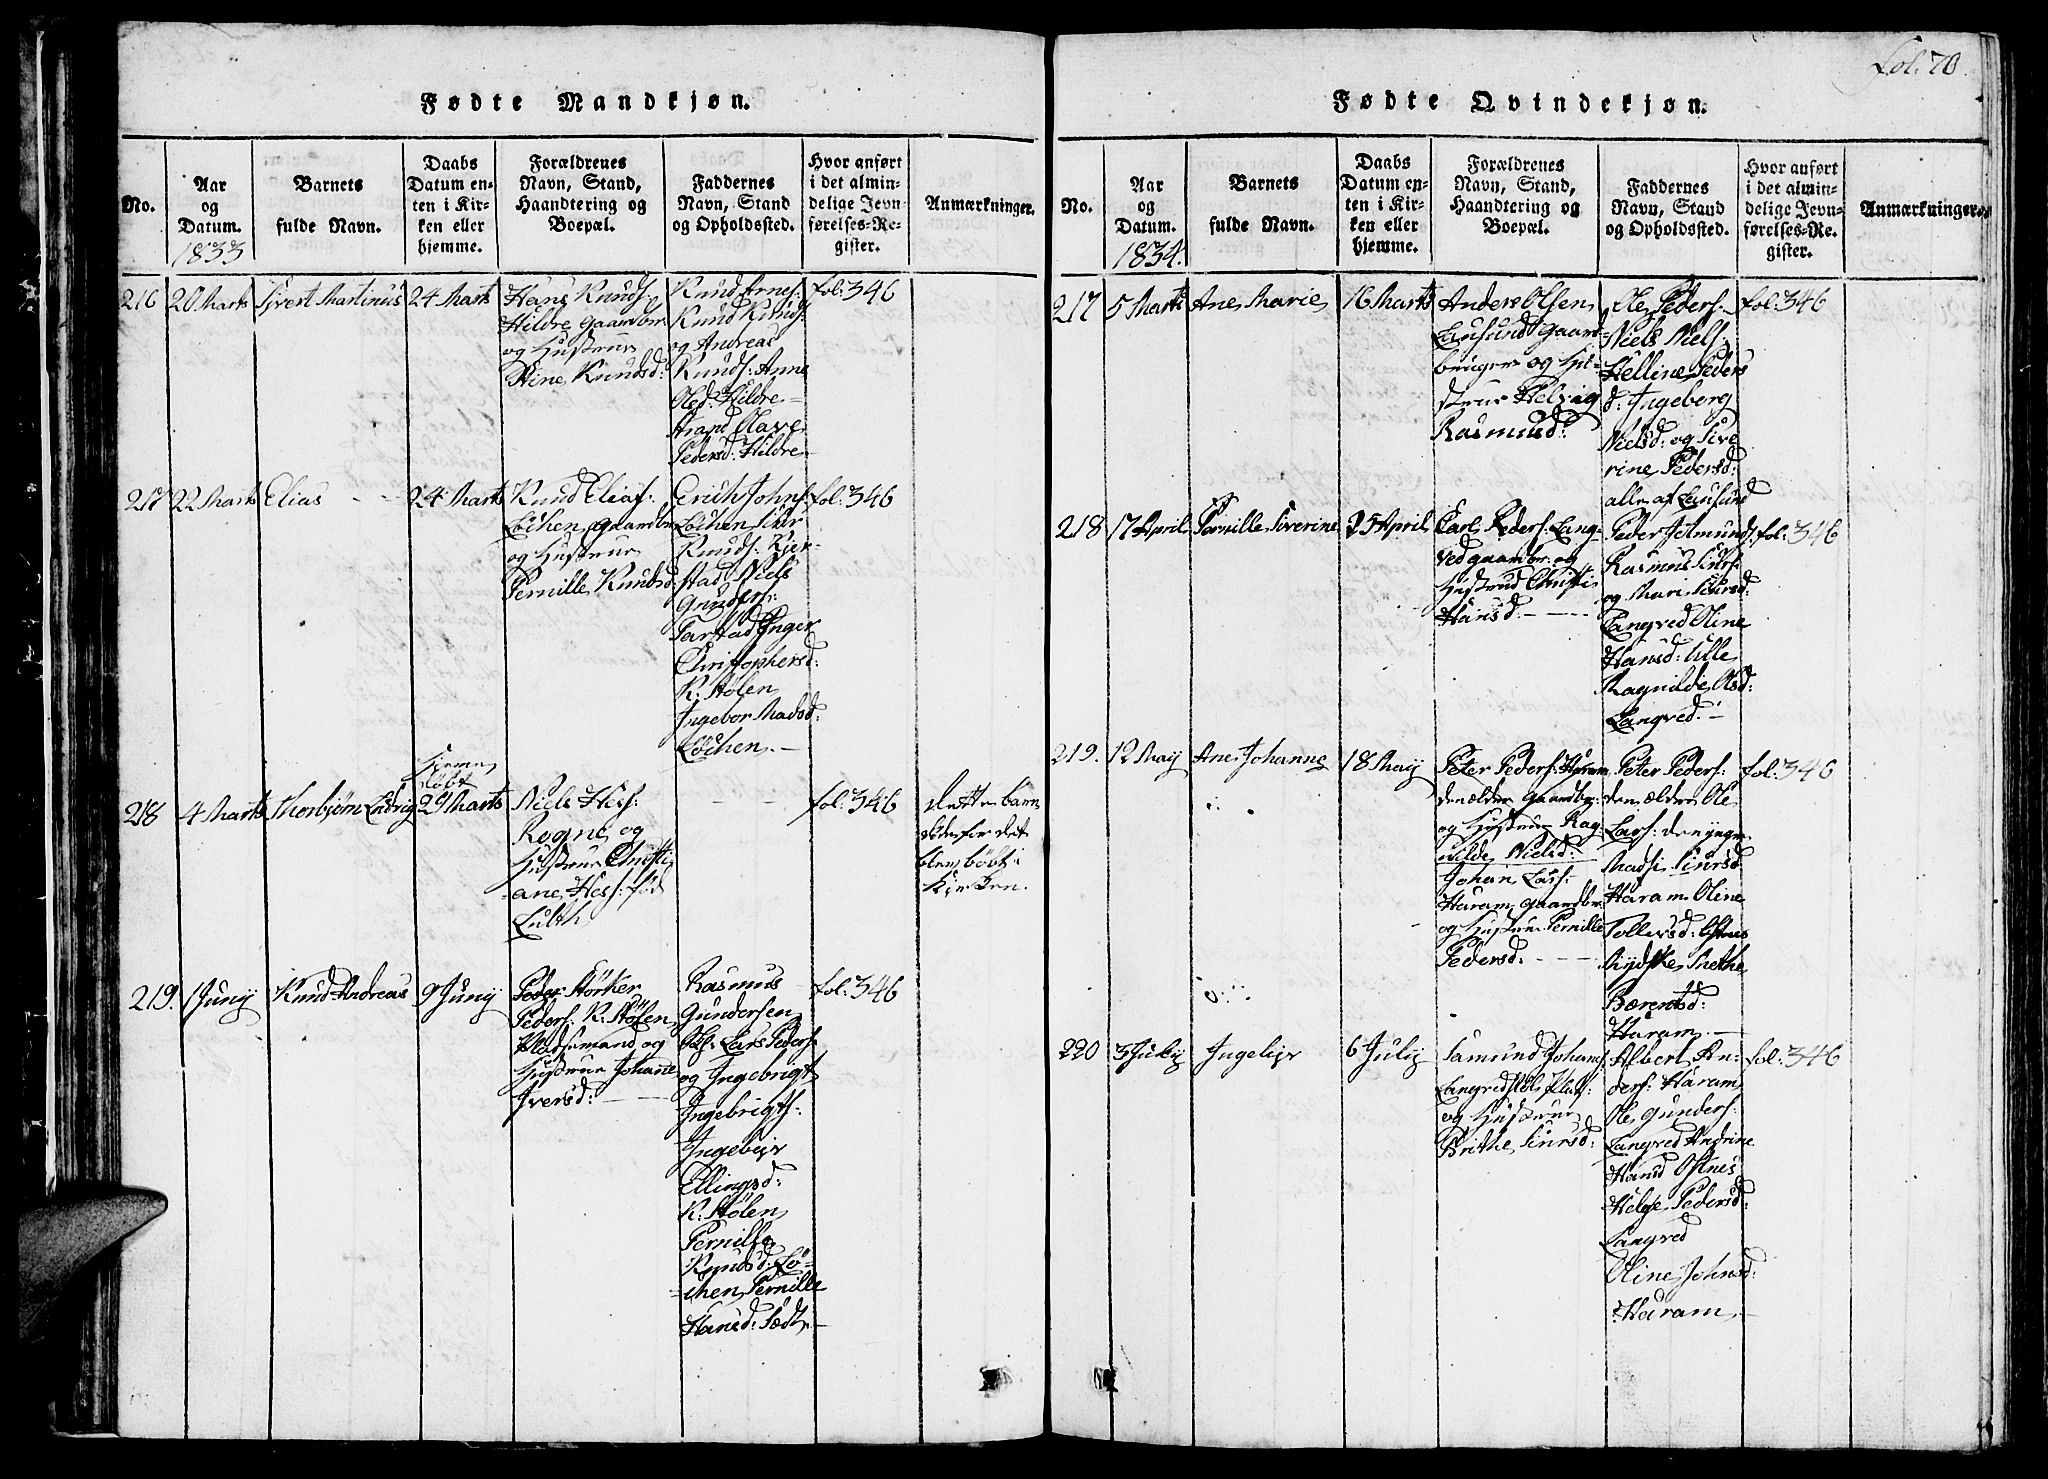 Fødte Mandkjøn.
No.
Aar
og
Datum.
1833
Barnets
fulde Navn.
Daabs
Datum en-
ten i Kir-
ken eller
hjemme.
Forældrenes
Navn, Stand,
Haandtering og
Boepæl.
Faddernes
Navn, Stand
og Opholdssted.
Hvor anført
i det almin-
delige Jevn-
førelses-Re-
gister.
Anmærkninger.
216
20 Marts
Sivert Martinus
24 Marts
Hans Knuds:
Hildre gaardbr
og Hustrue
Stine Knudsd:
Knud Arnes:
Knud Knuds:
og Andreas
Knuds: Anne
Olsd: Hildre-
strand Olave
Pedersd: Hildre
fol: 346
217
22 Marts
Elias
24 Marts
Knud Elias:
Löchen gaardbr
og Hustrue
Pernille Knudsd:
Erich Johns:
Löchen Siur
Knuds: Kjer-
stad Niels
Gunders:
Tarstad Inger
Christophersd:
K: Stölen
Ingebor Madsd:
Löchen. -
fol: 346
218
4 Marts
Thorbjörn Ludvig
Hjemme
döbt
29 Marts
Niels Hess:
Rogne og
Hustrue Christi-
ane Hess: föd
Luth
fol: 346
Dette barn
döde för det
blev döbt i
Kirken.
219.
1 Juny
Knud Andreas
9 Juny
Peder Störker
Peders: K: Stölen
Pladsemand og
Hustrue Johanne
Iversd:
Rasmus
Gundersen
Ols: Lars Peders:
og Ingebrigt
Ingebrigts:
Ingebejr
Ellingsd:
K: Stölen
Pernille
Knudsd: Lö-
chen Pernille
Hansd: Sædt
fol: 346
Fol: 70.
Fødte Qvindekjøn.
No.
Aar
og
Datum.
1834.
Barnets
fulde Navn.
Daabs
Datum en-
ten i Kir-
ken eller
hjemme.
Forældrenes
Navn, Stand,
Haandtering og
Boepæl.
Faddernes
Navn, Stand
og Opholdssted.
Hvor anført
i det almin-
delige Jevn-
førelses-Re-
gister.
Anmærkninger.
217
5 Marts
Ane Marie
16 Marts
Anders Olsen
Lausund Gaard-
bruger og Hu-
strue Helvig
Rasmusd:
Ole Peders:
Niels Niels:
Helline Peders
d: Ingeborg
Nielsd: og Sive
rine Pedersd:
alle af Lausund
fol: 346
218
17 April
Pernille Siverine
25 April
Carl Peders: Lang-
ved gaardbr: og
Hustrue Christi
Hansd:
Peder Aamunds:
Rasmus Siurs:
og Mari Siursd:
Langved Oline
Hansd: Ulle
Ragnilde Olsd:
Langved. -
fol: 346
219.
12 May
Ane Johanne
18 May
Peter Peders: Haram
den ældre gaardbr:
og Hustrue Rag-
nilde Nielsd:
Johan Lars:
Haram gaardbr
og Hustrue Pernille
Pedersd:
Peter Peders:
den ældre Ole
Lars: den yngre
Madsi Siursd:
Haram Oline
Tollevsd: Ostnes
Grethe
Bærentsd:
Haram. -
fol: 346
220
3 July
Ingebejr
6 July
Samund Johans:
Langvedstöl Plads:
og Hustrue
Brithe Siursd:
Albert An-
ders: Haram
Ole Gunders:
Langved Andrine
Hansd Ostnes
Helge Pedersd:
Langved
Oline Johnsd:
Haram
fol: 346